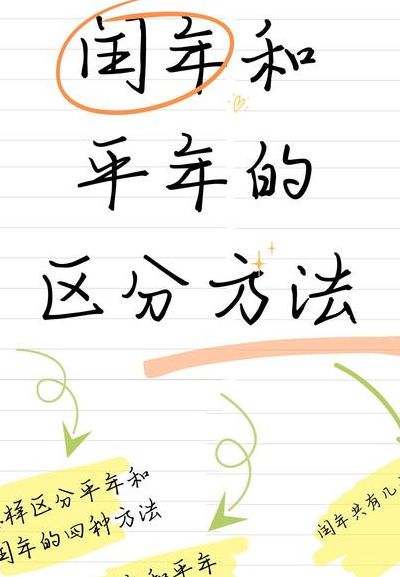 闰年和
平年的
区分方法
样区分平年和
闰年的四种方法
闰年共有几
和平年